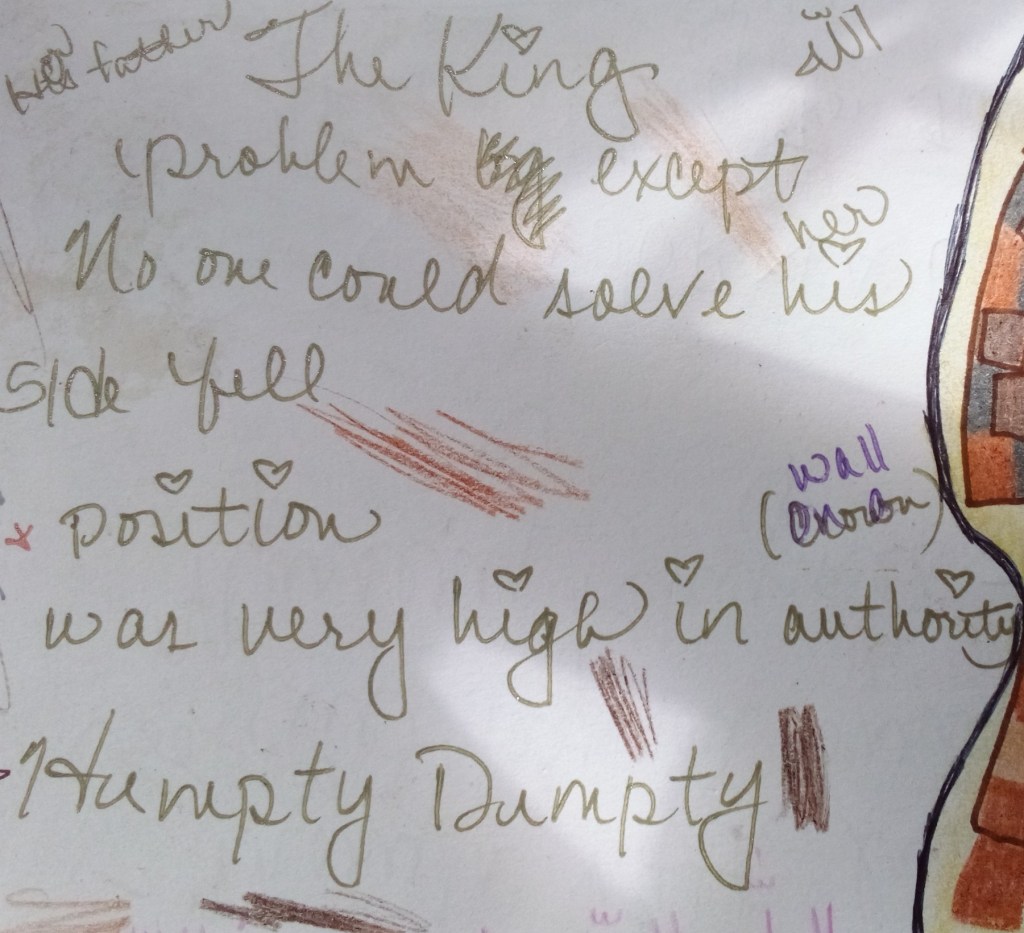 Her father The King
problem except
her
No one could solve his
side fell
position
wall
was very high in authority
Humpty Dumpty